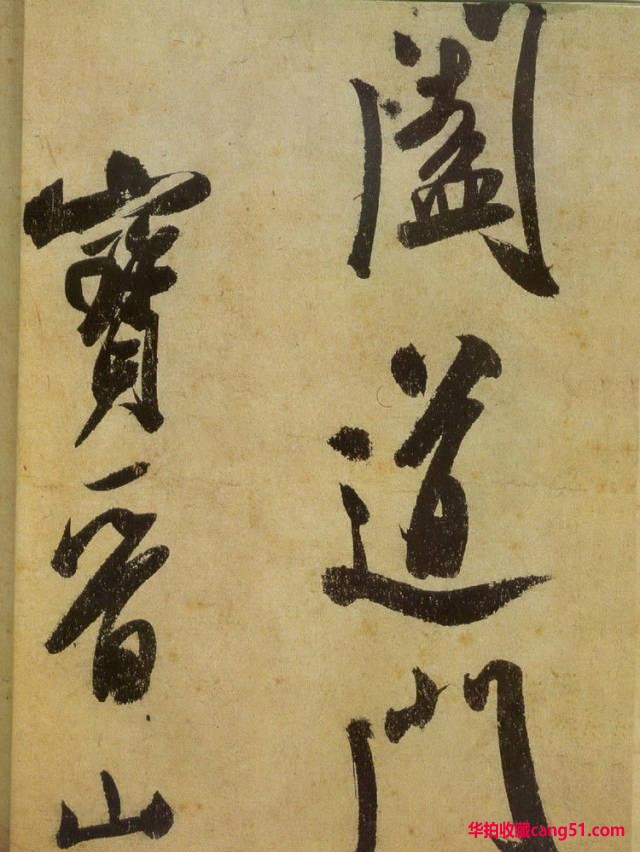 闔道門
寶晉山
华拍收藏cang51.com